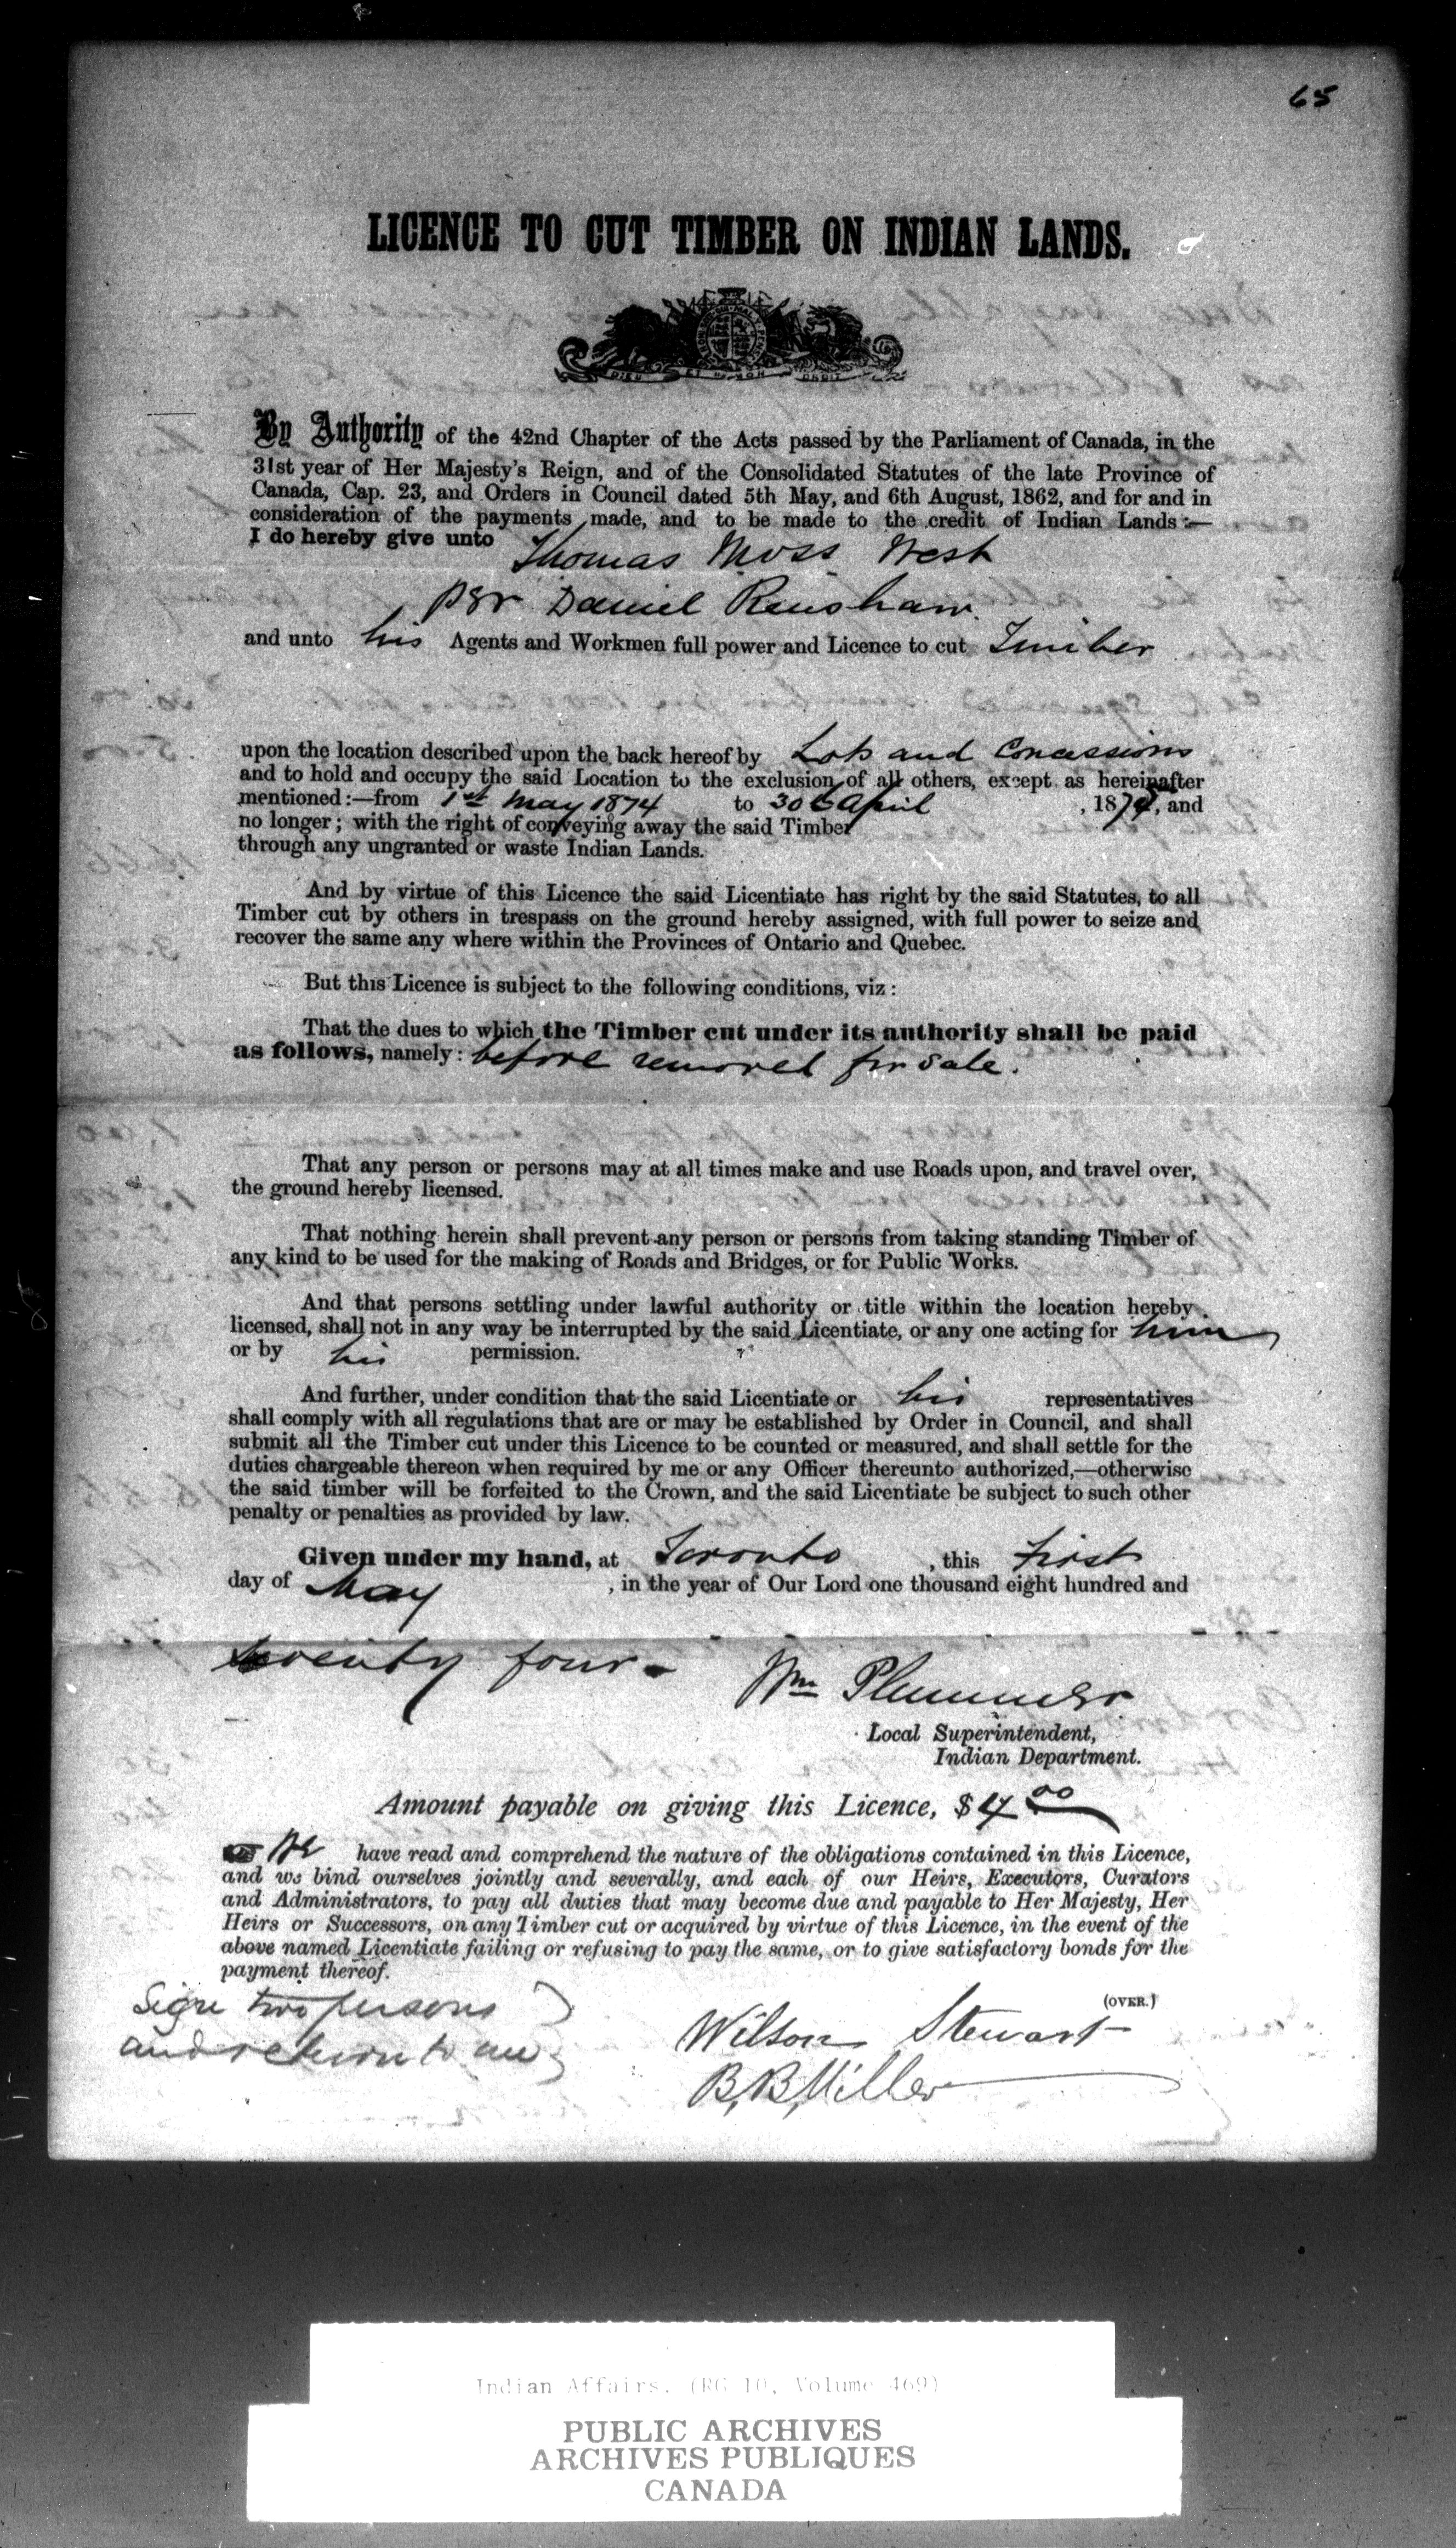 65
LICENCE TO CUT TIMBER ON INDIAN LANDS.
DIEU ET MON DROIT
By Authority of the 42nd Chapter of the Acts passed by the Parliament of Canada, in the
31st year of Her Majesty's Reign, and of the Consolidated Statutes of the late Province of
Canada, Cap. 23, and Orders in Council dated 5th May, and 6th August, 1862, and for and in
consideration of the payments made, and to be made to the credit of Indian Lands:—
I do hereby give unto Thomas Moss West
per Daniel Renshaw.
and unto his Agents and Workmen full power and Licence to cut Timber
upon the location described upon the back hereof by Lots and Concessions
and to hold and occupy the said Location to the exclusion of all others, except as hereinafter
mentioned:—from 1st May 1874 to 30th April, 187, and
no longer; with the right of conveying away the said Timber
through any ungranted or waste Indian Lands.
And by virtue of this Licence the said Licentiate has right by the said Statutes, to all
Timber cut by others in trespass on the ground hereby assigned, with full power to seize and
recover the same any where within the Provinces of Ontario and Quebec.
But this Licence is subject to the following conditions, viz:
That the dues to which the Timber cut under its authority shall be paid
as follows, namely: before removed for sale.
That any person or persons may at all times make and use Roads upon, and travel over,
the ground hereby licensed.
That nothing herein shall prevent any person or persons from taking standing Timber of
any kind to be used for the making of Roads and Bridges, or for Public Works.
And that persons settling under lawful authority or title within the location hereby
licensed, shall not in any way be interrupted by the said Licentiate, or any one acting for him
or by his permission.
And further, under condition that the said Licentiate or his representatives
shall comply with all regulations that are or may be established by Order in Council, and shall
submit all the Timber cut under this Licence to be counted or measured, and shall settle for the
duties chargeable thereon when required by me or any Officer thereunto authorized,—otherwise
the said timber will be forfeited to the Crown, and the said Licentiate be subject to such other
penalty or penalties as provided by law.
Given under my hand, at Toronto, this first
day of May, in the year of Our Lord one thousand eight hundred and
seventy four -
Wm Plummer
Local Superintendent,
Indian Department.
Amount payable on giving this Licence, $4.00
We have read and comprehend the nature of the obligations contained in this Licence,
and we bind ourselves jointly and severally, and each of our Heirs, Executors, Curators
and Administrators, to pay all duties that may become due and payable to Her Majesty, Her
Heirs or Successors, on any Timber cut or acquired by virtue of this Licence, in the event of the
above named Licentiate failing or refusing to pay the same, or to give satisfactory bonds for the
payment thereof.
(OVER.)
Sign two persons
and return to me
Wilson Stewart
B. B. Miller
Indian Affairs. (RG 10, Volume 469)
PUBLIC ARCHIVES
ARCHIVES PUBLIQUES
CANADA